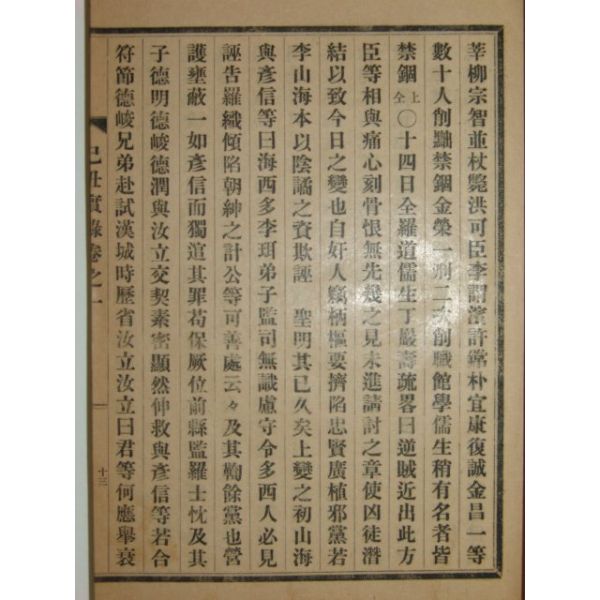 莘柳宗智並杖斃洪可臣李謂濱許鏛朴宜康復誠金昌一等
數十人削黜禁錮金榮一刑二次削職館學儒生稍有名者皆
禁錮上仝〇十四日全羅道儒生丁巖壽疏畧曰逆賊近出此方
臣等相與痛心刻骨恨無先幾之見未進請討之章使凶徒潛
結以致今日之變也自奸人竊柄樞要擠陷忠賢廣植邪黨若
李山海本以陰譎之資欺誣 聖明其已久矣上變之初山海
與彥信等曰海西多李珥弟子監司無識慮守令多西人必見
誣告羅織傾陷朝紳之計公等可善處云々及其鞫餘黨也營
護壅蔽一如彥信而獨逭其罪苟保厥位前縣監羅士忱及其
子德明德峻德潤與汝立交契素密顯然伸救與彥信等若合
符節德峻兄弟赴試漢城時歷省汝立汝立曰君等何應舉衰
己丑實錄卷之一
十三